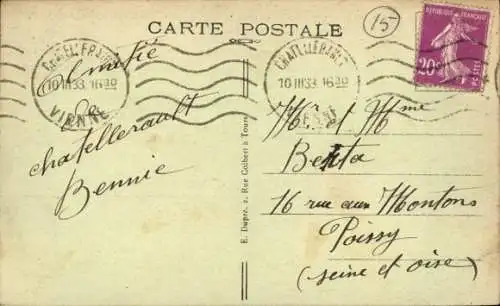 CARTE POSTALE
15
RÉPUBLIQUE FRANÇAISE
20c
CHATELLERAULT
10 III 33 16 30
VIENNE
CHATELLERAULT
10 III 33 16 30
VIENNE
Amitié
de
chatellerault
Bennie
E. Dupré, 2, Rue Colbert à Tours
Mr et Mme
Benta
16 rue aux Moutons
Poissy
(seine et oise)